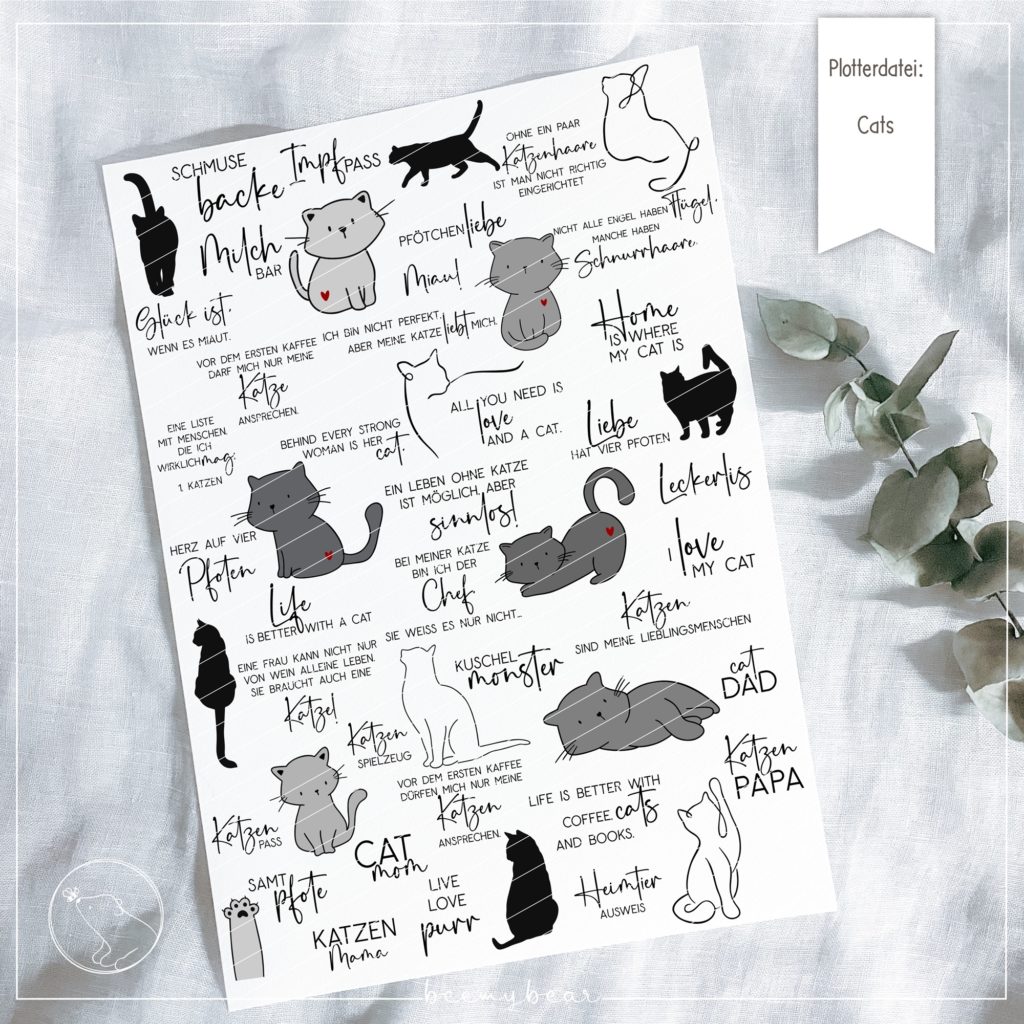 Plotterdatei:
Cats
SCHMUSE
backe
Impf PASS
OHNE EIN PAAR
Katzenhaare
IST MAN NICHT RICHTIG
EINGERICHTET
Milch
BAR
PFÖTCHEN liebe
NICHT ALLE ENGEL HABEN Flügel.
MANCHE HABEN
Schnurrhaare.
Miau!
Glück ist,
WENN ES MIAUT.
VOR DEM ERSTEN KAFFEE
DARF MICH NUR MEINE
Katze
ANSPRECHEN.
ICH BIN NICHT PERFEKT,
ABER MEINE KATZE liebt MICH.
Home
IS WHERE
MY CAT IS
EINE LISTE
MIT MENSCHEN,
DIE ICH
WIRKLICH mag:
1. KATZEN
BEHIND EVERY STRONG
WOMAN IS HER
cat.
ALL YOU NEED IS
love
AND A CAT.
Liebe
HAT VIER PFOTEN
EIN LEBEN OHNE KATZE
IST MÖGLICH, ABER
sinnlos!
Leckerlis
HERZ AUF VIER
Pfoten
BEI MEINER KATZE
BIN ICH DER
Chef.
SIE WEISS ES NUR NICHT...
I love
MY CAT
Life
IS BETTER WITH A CAT
Katzen
SIND MEINE LIEBLINGSMENSCHEN
EINE FRAU KANN NICHT NUR
VON WEIN ALLEINE LEBEN.
SIE BRAUCHT AUCH EINE
Katze!
KUSCHEL
monster
cat
DAD
Katzen
SPIELZEUG
Katzen
PAPA
VOR DEM ERSTEN KAFFEE
DÜRFEN MICH NUR MEINE
Katzen
ANSPRECHEN.
LIFE IS BETTER WITH
COFFEE, cats
AND BOOKS.
Katzen
PASS
CAT
mom
SAMT
pfote
LIVE
LOVE
purr
Heimtier
AUSWEIS
KATZEN
Mama
beemybear